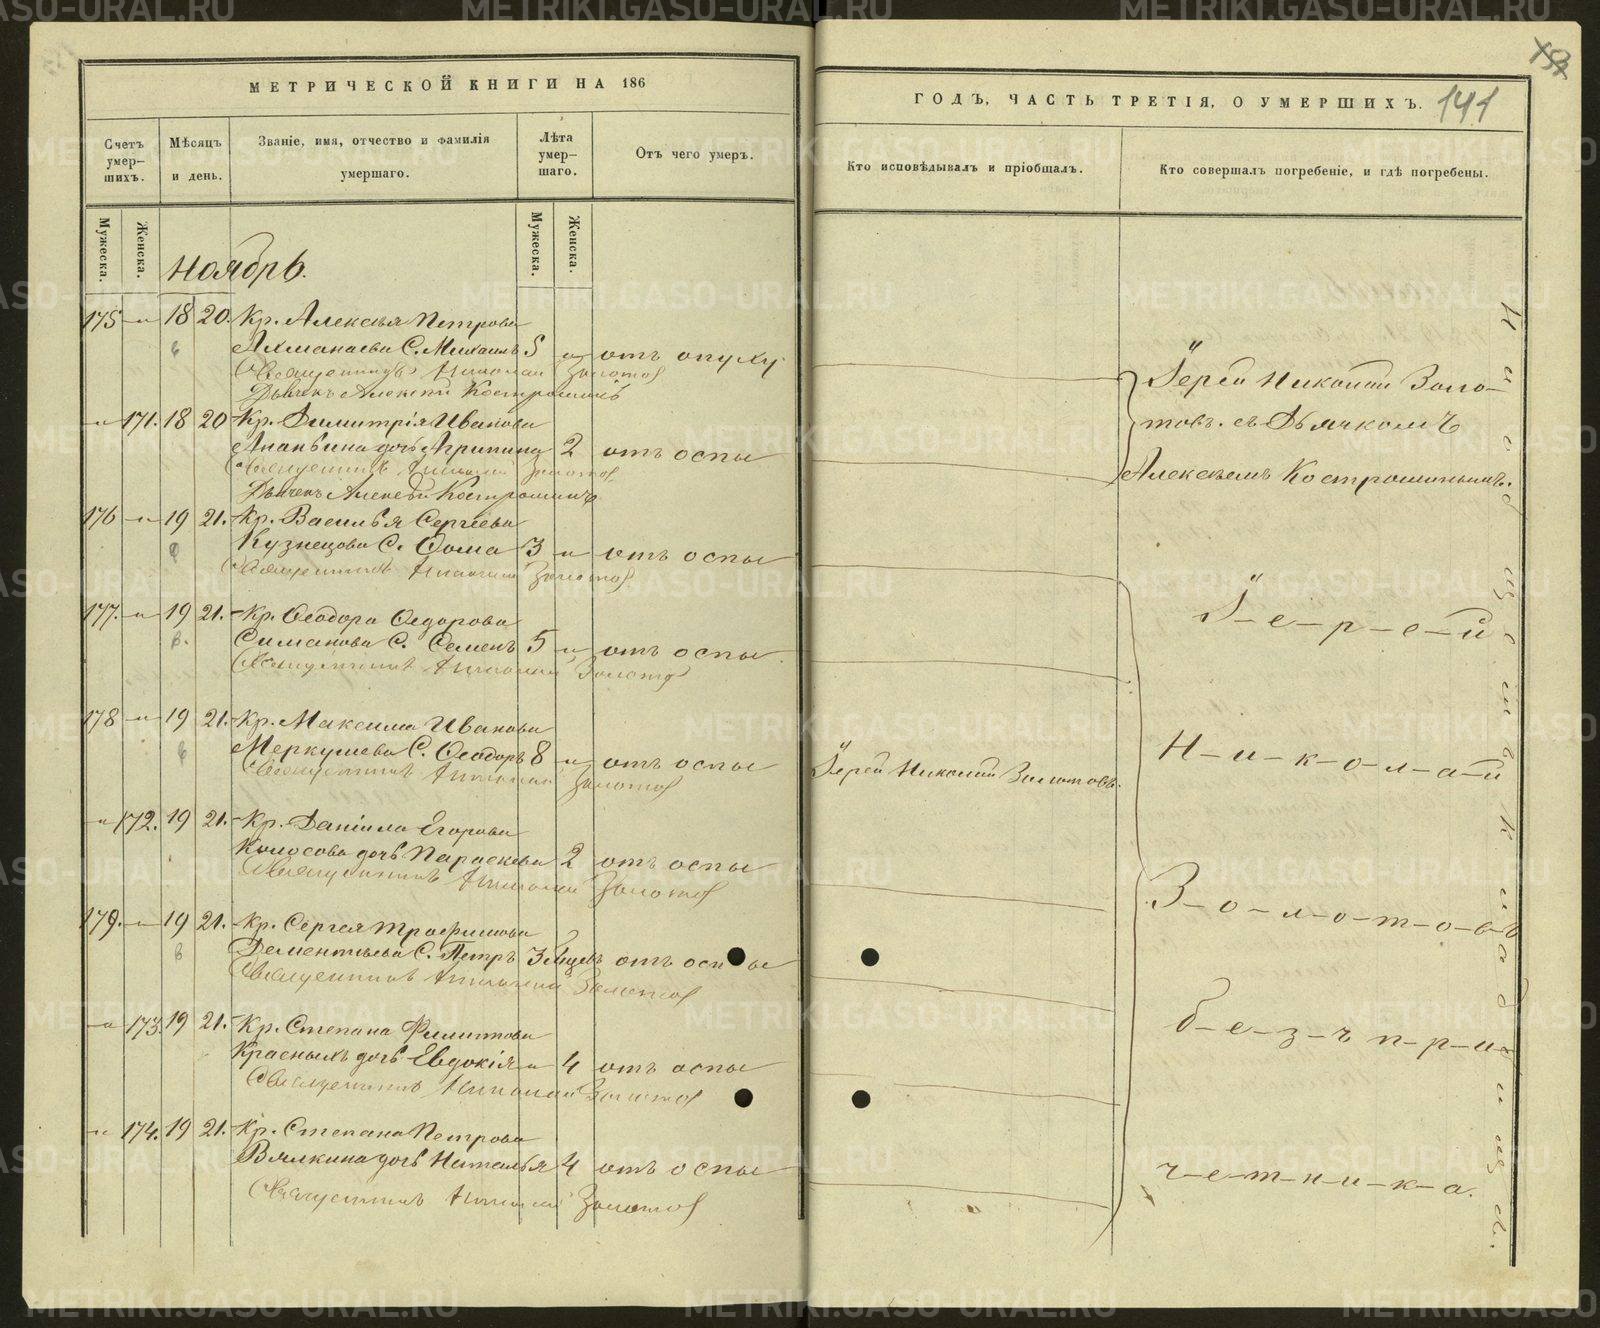 МЕТРИЧЕСКОЙ КНИГИ НА 186
Счетъ умер-шихъ.
Мѣсяцъ и день.
Званіе, имя, отчество и фамилія умершаго.
Лѣта умер-шаго.
Отъ чего умеръ.
Мужеска.
Женска.
Мужеска.
Женска.
Ноябрь.
175 — 18 20. Кр. Алексѣя Петрова
Ахманаева С. Михаилъ 5 отъ опуху
Священникъ Николай Золотов
Дьячекъ Алексѣй Костромин
171. 18 20 Кр. Димитрія Иванова
Ананьина дочь Агрипина 2 отъ оспы
Священникъ Николай Золотов
Дьячекъ Алексѣй Костроминъ
176 — 19 21. Кр. Василья Сергѣева
Кузнецова С. Фома 3 отъ оспы
Священникъ Николай Золотов
177. 19 21. Кр. Ѳеодора Ѳедорова
Симанова С. Семенъ 5 отъ оспы
Священникъ Николай Золотов
178 19 21. Кр. Максима Иванова
Меркушева С. Ѳеодоръ 8 отъ оспы
Священникъ Николай Золотов
172. 19 21. Кр. Даніила Егорова
Колосова дочь Параскева 2 отъ оспы
Священникъ Николай Золотов
179. 19 21. Кр. Сергея Трофимова
Дементьева С. Петръ 3 отъ оспы
Священникъ Николай Золотов
173. 19 21. Кр. Степана Филиппова
Красныхъ дочь Евдокія 4 отъ оспы
Священникъ Николай Золотов
174. 19 21. Кр. Степана Петрова
Вялкина дочь Наталья 4 отъ оспы
Священникъ Николай Золотов
141
ГОДЪ, ЧАСТЬ ТРЕТІЯ, О УМЕРШИХЪ.
Кто исповѣдывалъ и пріобщалъ.
Кто совершалъ погребеніе, и гдѣ погребены.
Іерей Николай Золо-
товъ. съ Дьячкомъ
Алексѣемъ Костроминымъ.
Іерей Николай Золотовъ.
І-е-р-е-й
Н-и-к-о-л-а-й
З-о-л-о-т-о-в-ъ
б-е-з-ъ п-р-и-
ч-е-т-н-и-к-а.
METRIKI.GASO-URAL.RU